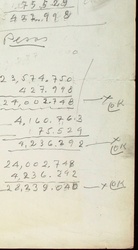 75.529
422.998
Pesos
23,574.750
427.998
24,002.748 x OK
4,160.763
175.529
4,236.292 x OK
24,002.748
4,236.292
28,239.040 x OK